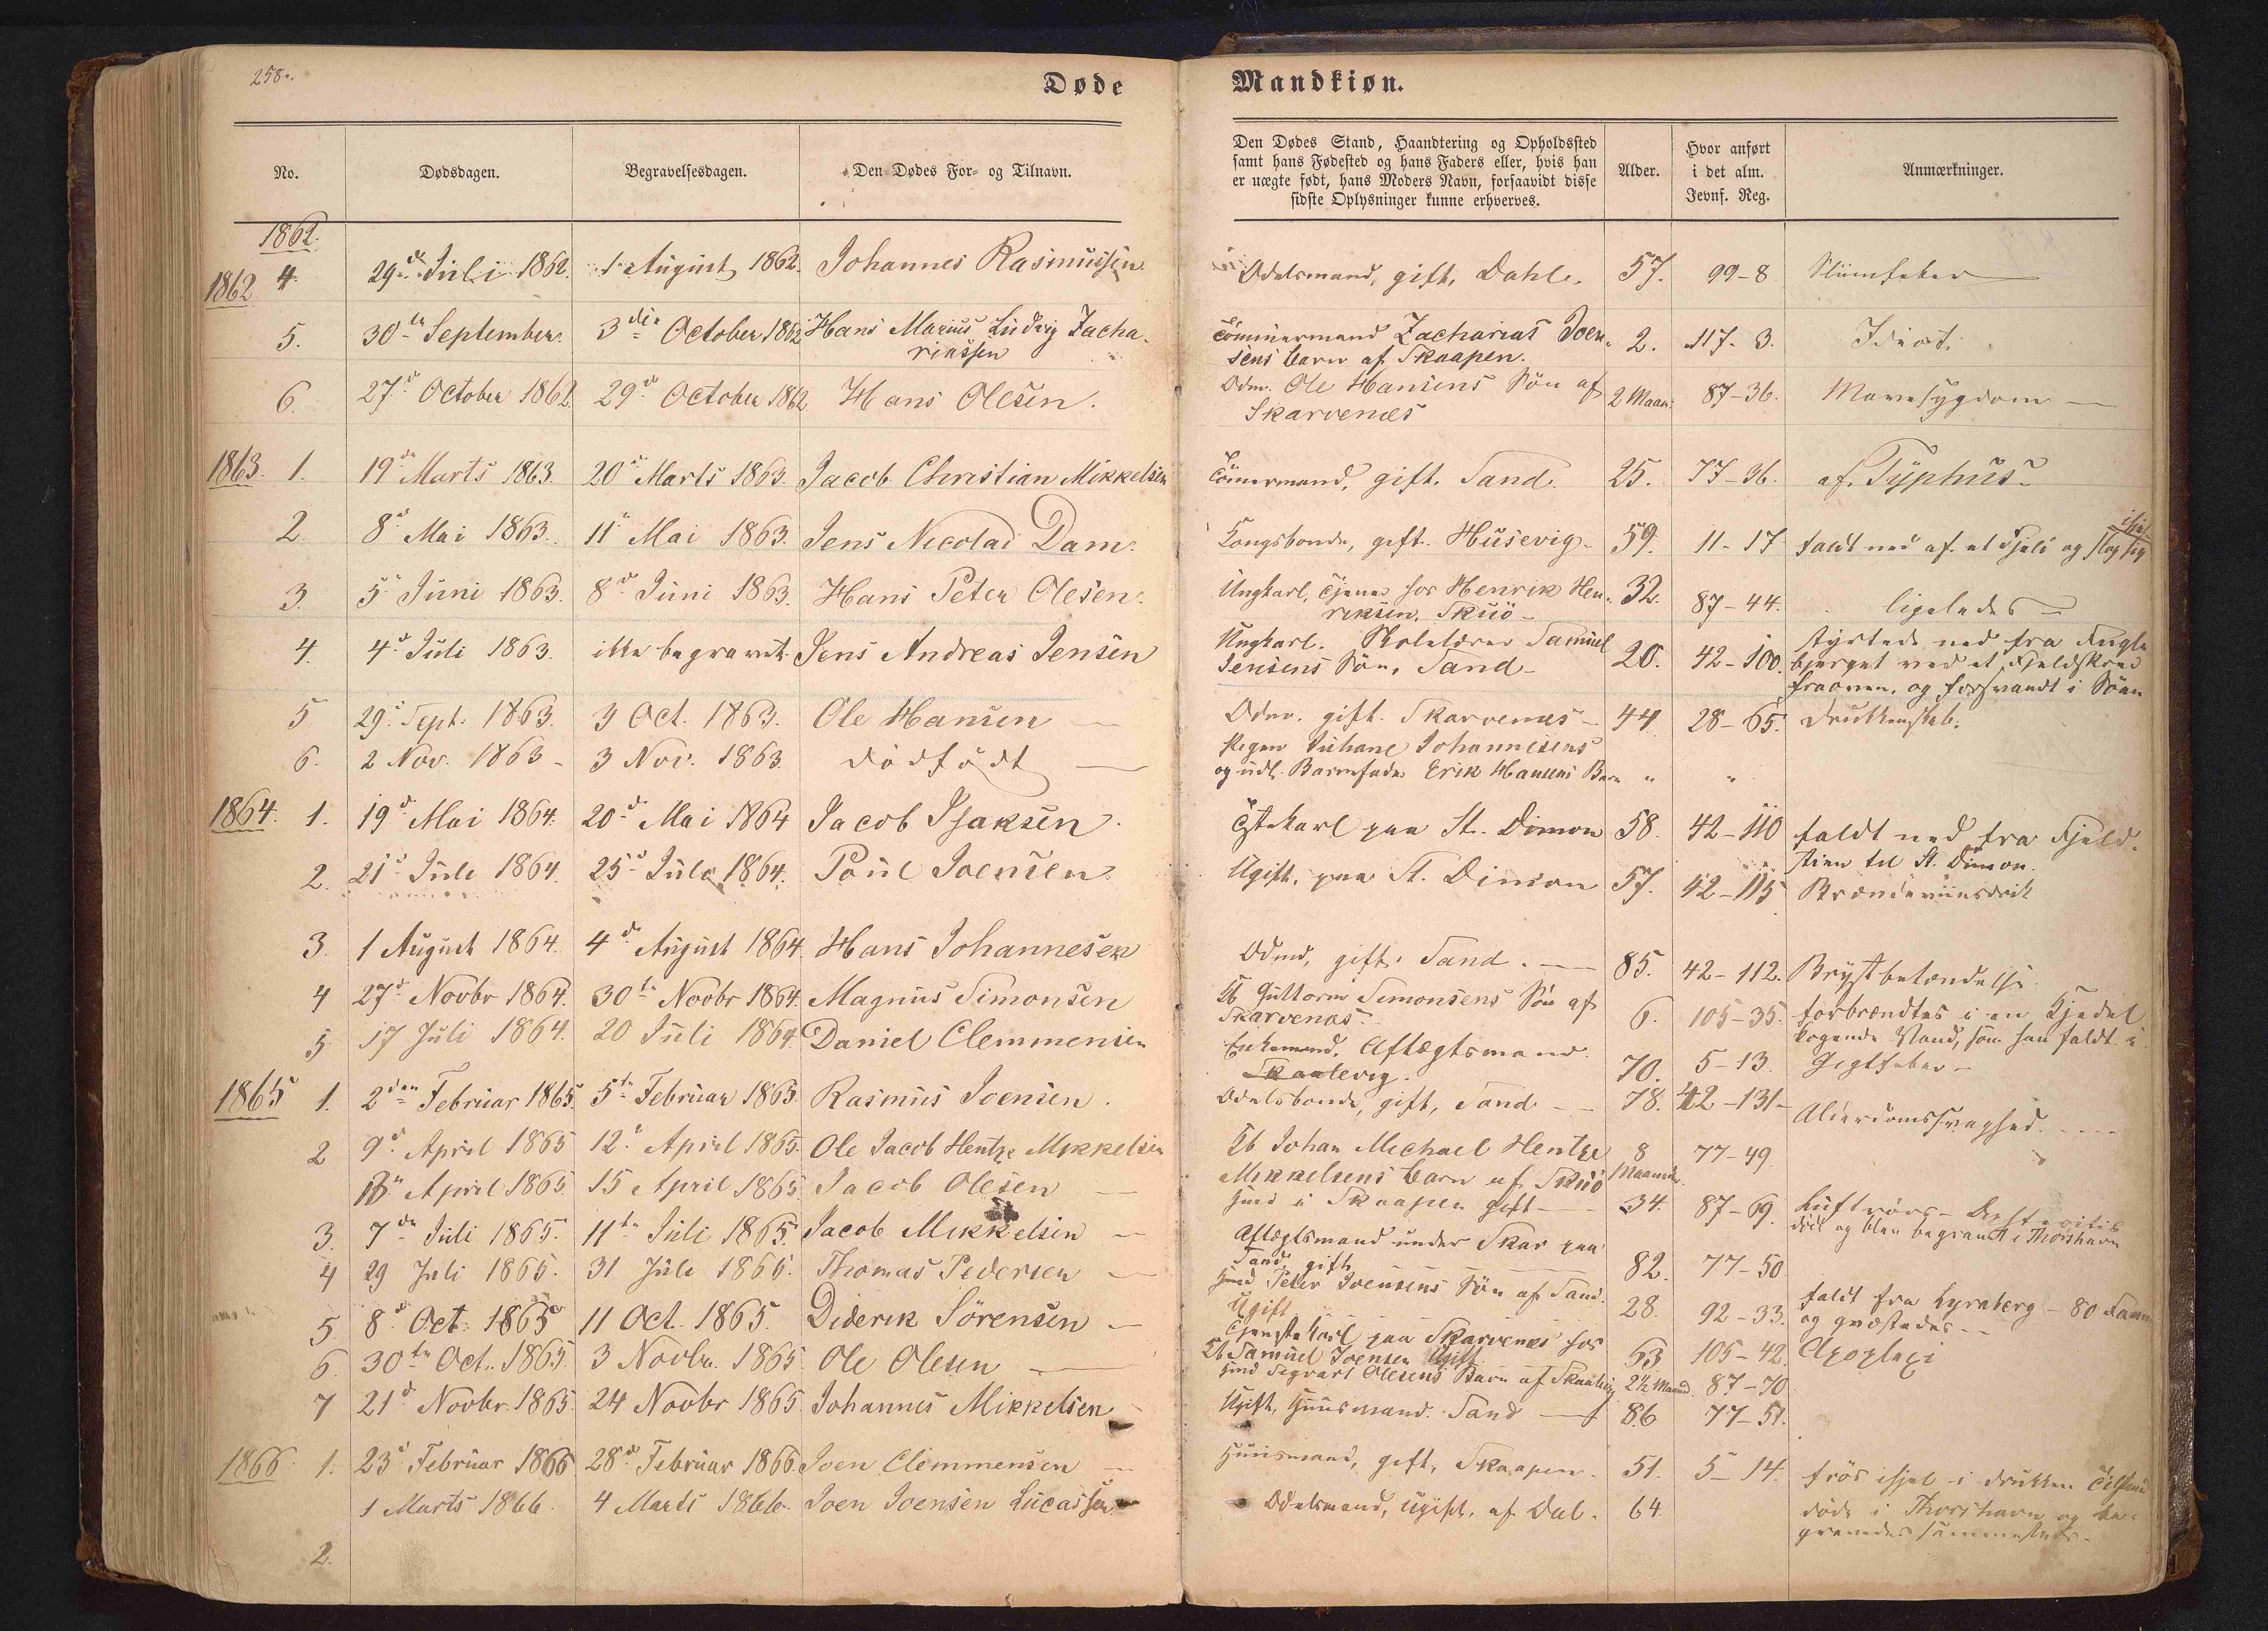 258.
Døde
Mandkiøn.
No.
Dødsdagen.
Begravelsesdagen.
Den Dødes For- og Tilnavn.
Den Dødes Stand, Haandtering og Opholdssted
samt hans Fødested og hans Faders eller, hvis han
er uægte født, hans Moders Navn, forsaavidt disse
sidste Oplysninger kunne erhverves.
Alder.
Hvor anført
i det alm.
Jevnf. Reg.
Anmærkninger.
1862.
1862 4. 29de Juli 1862. 1 August 1862. Johannes Rasmussen Odelsmand, gift, Dahle. 57. 99-8 Slimfeber
5. 30te September. 3die October 1862 Hans Marius Ludvig Zacha- Tömmermand Zacharias Joen- 2. 117-3. Idiot.
riassen sens Barn af Skaapen.
6. 27d October 1862 29d October 1862 Hans Olesen. Odm. Ole Hansens Sön af 2 Maan: 87-36. Mavesygdom
Skarvenæs
1863. 1. 19de Marts 1863. 20de Marts 1863. Jacob Christian Mikkelsen Tömmermand, gift. Sand. 25. 77-36. af Typhus
2. 8d Mai 1863. 11te Mai 1863. Jens Nicolai Dam. Kongsbonde, gift. Husevig. 59. 11-17 faldt ned af et Fjeld og slog sig ihjel
3. 5te Juni 1863. 8d Juni 1863. Hans Peter Olesen. Ungkarl, Tjener hos Henrik Hen- 32. 87-44. ligeledes
riksen, Skuö
4. 4d Juli 1863. ikke begravet. Jens Andreas Jensen Ungkarl. Skolelærer Samuel 20. 42-100. styrtede ned fra Fugle
Jensens Sön, Sand bjerget ved et Fjeldskred
fraoven, og forsvandt i Söen
5 29d Sept. 1863. 3 Oct. 1863. Ole Hansen Odm. gift. Skarvenæs 44 28-65. Drukkenskab.
6. 2 Nov. 1863 3 Nov. 1863. dödfödt Pigen Suhane Johannesens
og udl. Barnefader Erik Hansens Barn " "
1864. 1. 19d Mai 1864. 20d Mai 1864 Jacob Isaksen. Tjenstekarl paa St. Dimon 58. 42-110 faldt ned fra Fjeld-
stien til St. Dimon.
2. 21d Juli 1864. 25d Juli 1864. Poul Joensen Ugift, paa St. Dimon 57. 42-115 Brændeviinsdrik
3. 1 August 1864. 4d August 1864. Hans Johannesen Odmd, gift, Sand. 85. 42-112. Brystbetændelse
4 27d Novbr 1864. 30te Novbr 1864. Magnus Simonsen Kb Guttorm Simonsens Sön af 6. 105-35. forbrændtes i en Kjedel
Skarvenæs. kogende Vand, som han faldt i
5 17 Juli 1864. 20 Juli 1864. Daniel Clemmensen Enkemand. Aftægtsmand. 70. 5-13. Gigtfeber
Skaalevig.
1865 1. 2den Februar 1865. 5te Februar 1865. Rasmus Joensen. Odelsbonde, gift, Sand 78. 42-131 Alderdomssvaghed.
2 9d April 1865 12te April 1865. Ole Jacob Hentze Mikkelsen Kb Johan Michael Hentze 8 77-49
Mikkelsens Barn af Skuö Maaneder.
13te April 1865 15 April 1865 Jacob Olesen Hmd i Skaapen gift 34. 87-69. Luftrörs-
död og blev begravet i Thorshavn
3. 7de Juli 1865. 11te Juli 1865. Jacob Mikkelsen Aftægtsmand under Skar paa 82. 77-50
Sand, gift
4 29 Juli 1865. 31 Juli 1865. Thomas Pedersen Hmd Peter Joensens Sön af Sand. 28. 92-33. faldt fra Lyraberg - 80 Favne
Ugift og qvæstedes
5 8d Oct. 1865 11 Oct. 1865. Diderik Sörensen Tjenstekarl paa Skarvenæs hos 63 105-42. Apoplexi
Kb Samuel Joensen Ugift
6 30te Oct. 1865. 3 Novbr. 1865 Ole Olesen Hmd Sigvart Olesens Barn af Skaalvig 2½ Maaned. 87-70
7 21d Novbr. 1865. 24 Novbr 1865 Johannes Mikkelsen Ugift, Huusmand. Sand 86 77-51.
1866 1. 23d Februar 1866 28d Februar 1866. Joen Clemmensen Huusmand, gift, Skaapen. 51. 5-14. frös ihjel i drukken Tilstand
2. 1 Marts 1866. 4 Marts 1866. Joen Joensen Lucassen Odelsmand, ugift, af Dal. 64 döde i Thorshavn og be-
gravedes sammesteds.